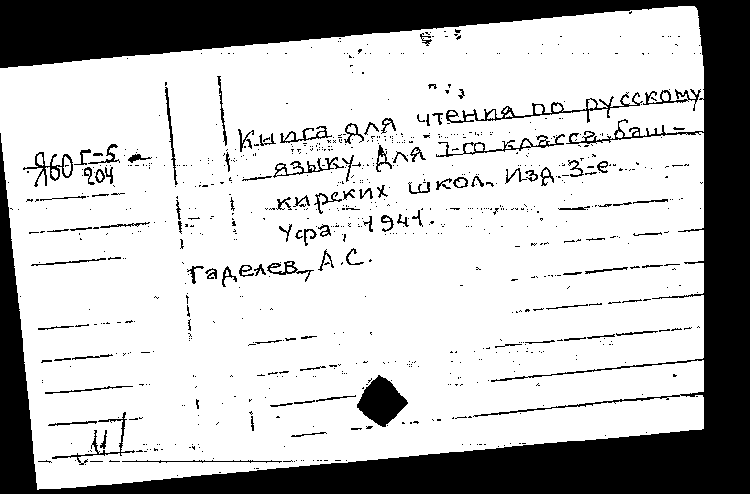 Я60 Г-5
204
Книга для чтения по русскому
языку для 7-го класса баш-
кирских школ. Изд. 3-е.
Уфа, 1941.
Гаделев, А.С.